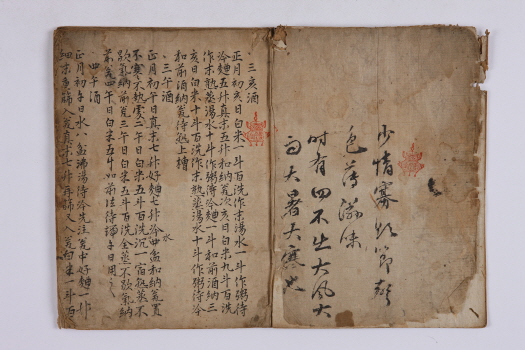 少情寡欲節聲
色薄滋味
時有四不出大風大
雨大暑大寒也
三亥酒
正月初亥日白米一斗百洗作末湯水一斗作粥待
冷麴五升真末五升和納瓮次亥日白米九斗百洗
作末熟蒸湯水十斗作粥待冷麴一斗和前酒納三
亥日白米十斗百洗作末熟蒸湯水十斗作粥待冷
和前酒納瓮待熟上槽
三午酒
正月初午日真末七升好麴七升冷水四盆和納瓮置
不寒不熱處二午日白米五斗百洗沉一宿熟蒸不
歇氣納前瓮三午日白米五斗百洗全蒸不歇氣納
前瓮四午日白米五斗如前法待端午日用之
四午酒
正月初午日水八盆沸湯待冷先注瓮中好麴一升
細末篩入瓮真末七升再篩又入瓮白米一斗百